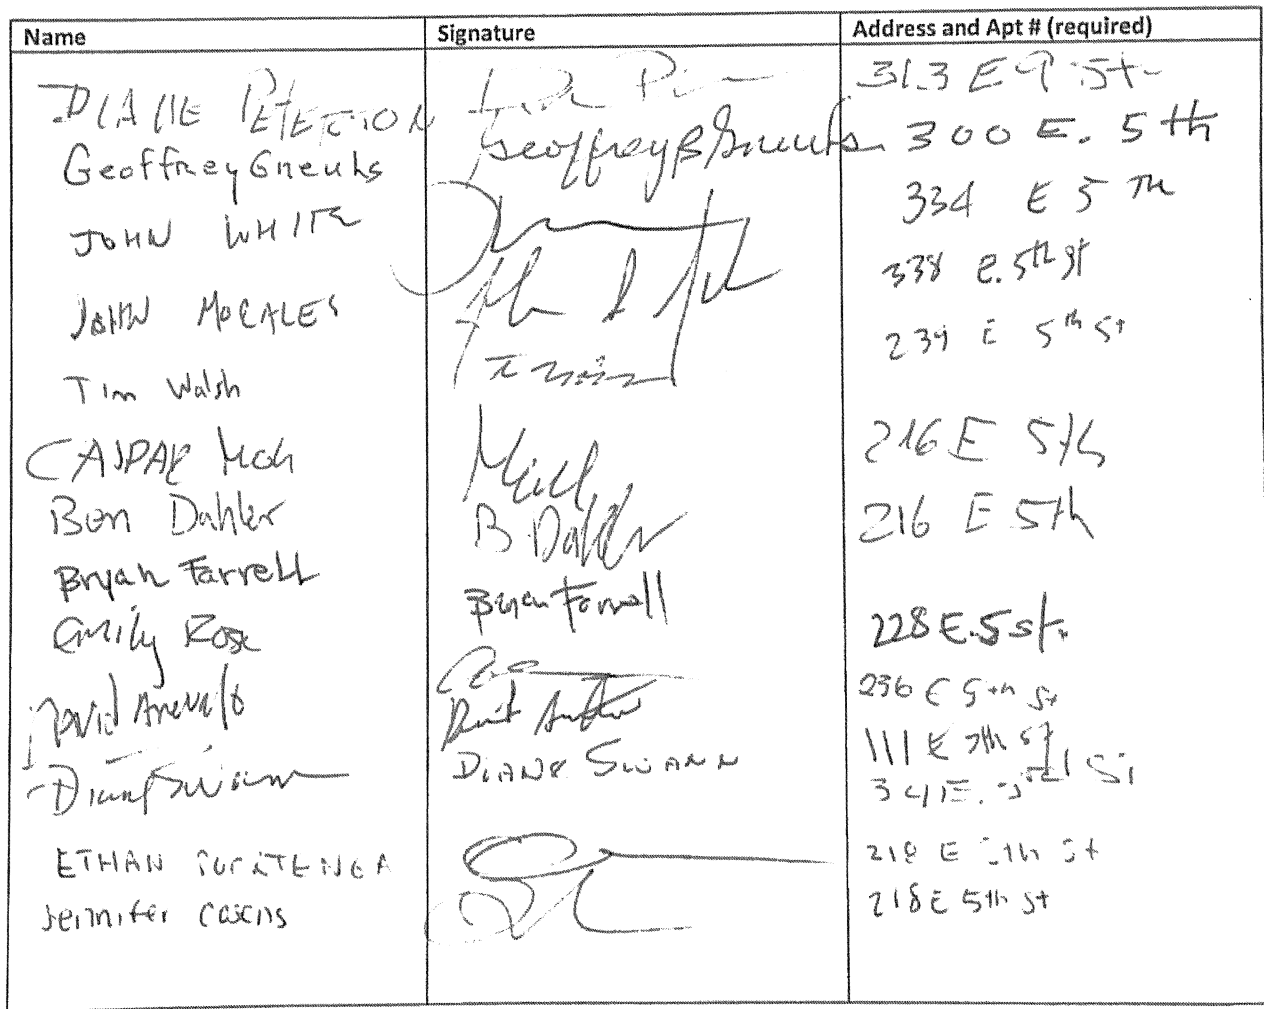 Name Signature Address and Apt # (required)
DIANE PETERSON 313 E 9 St.
Geoffrey Gneuhs Geoffrey B Gneuhs 300 E. 5th
JOHN WHITE 334 E 5 TH
JOHN MORALES 338 E. 5th St
Tim Walsh 239 E 5th St
CASPAR 216 E 5th
Ben Dahler B Dahler 216 E 5th
Bryan Farrell Bryan Farrell
Emily Rose 228 E. 5 St.
David Arevalo 236 E 5th St
Diane Swann DIANE SWANN 111 E 7th St
341 E. St
ETHAN 218 E 5th St
Jennifer 218 E 5th St